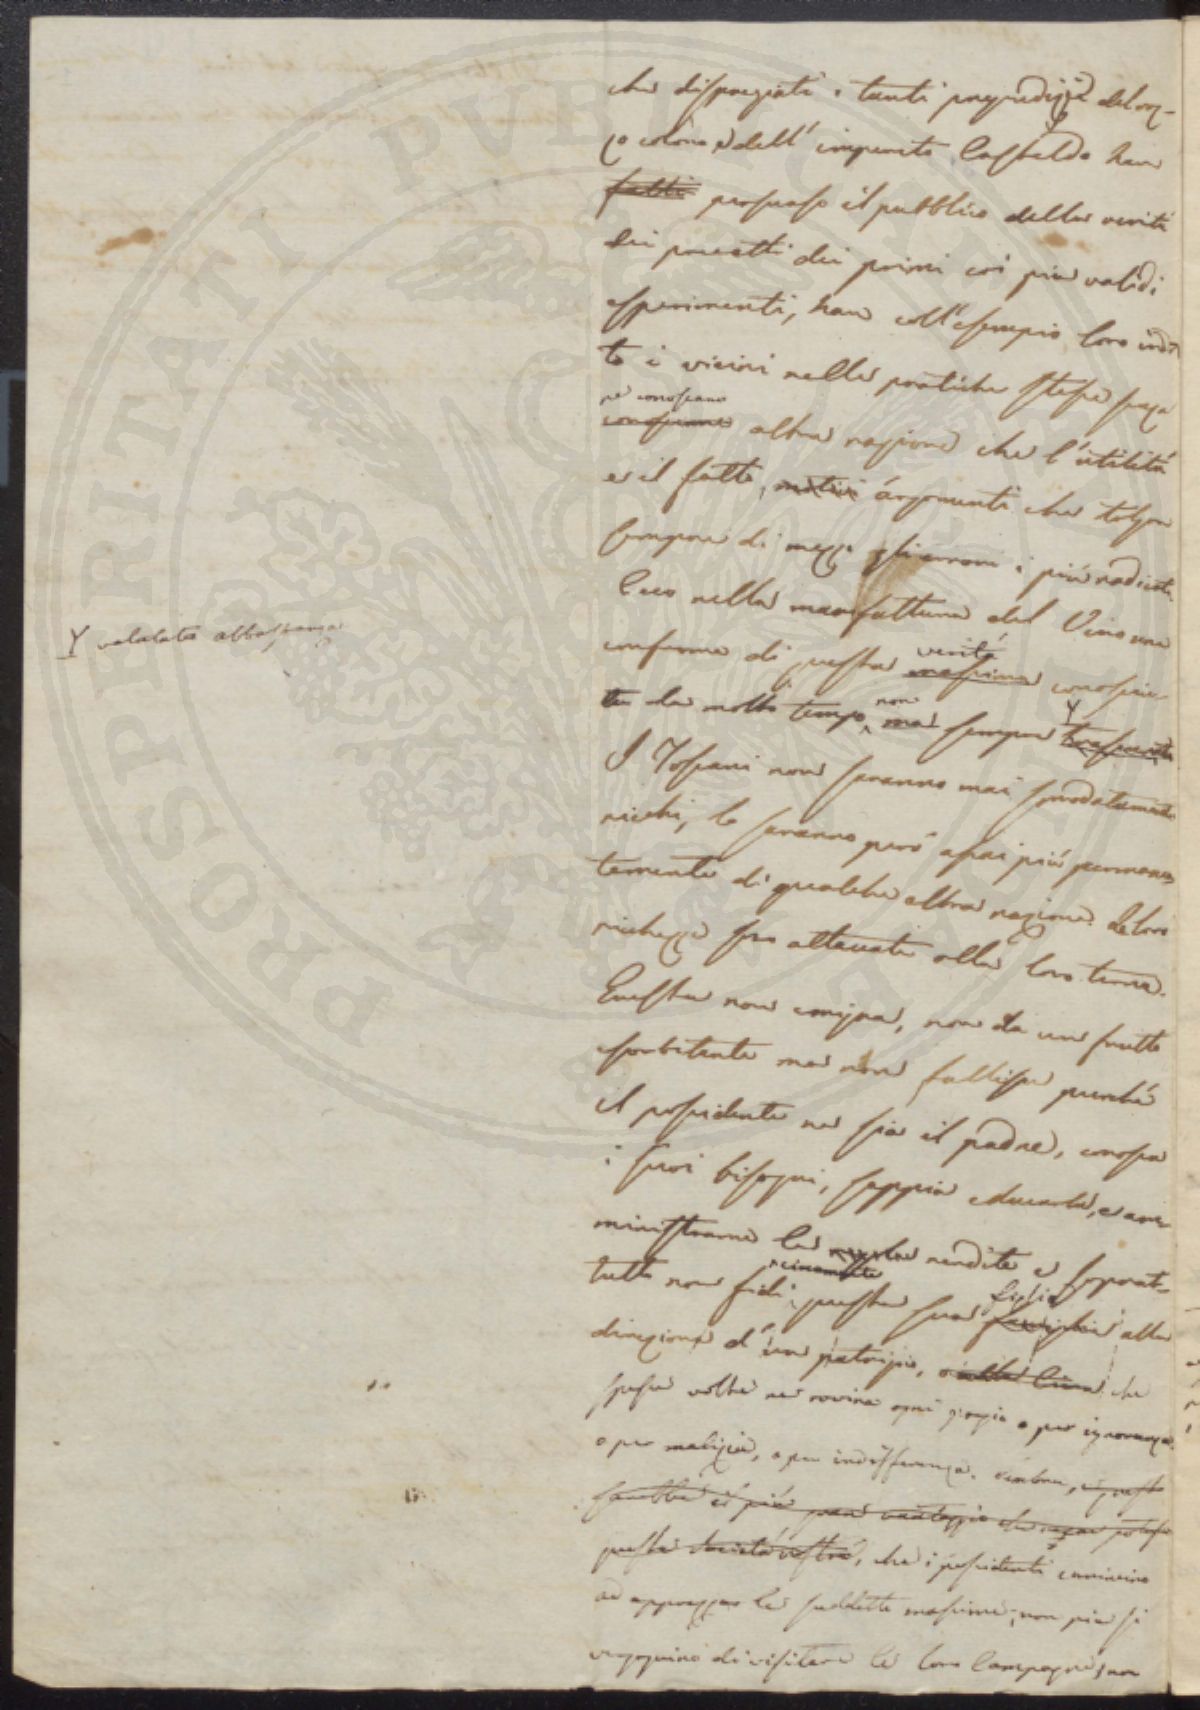 che dispregiati i tanti pregiudizj del roz-
zo colono, e dell'imperito Castaldo han
fatti persuaso il pubblico della verità
dei precetti dei primi coi più validi
esperimenti, han coll'esempio loro indot
to i vicini nelle pratiche stesse senza
ne conoscano
conoscerne altra ragione che l'utilità
e il fatto, motivi argomenti che tolgon
sempre di mezzo gli errori i più radicati.
Ecco nella manifattura del Vino una
conferma di questa verità massima conosciu-
ta da molto tempo, non ma sempre Y
Y valutata abbastanza
I Toscani non saranno mai smodatamente
ricchi, lo saranno però assai più permanen
temente di qualche altra nazione. Le loro
richezze son attaccate alla loro terra.
Questa non emigra, non da un frutto
esorbitante ma non fallisce purché
il possidente ne sia il padre, conosca
i suoi bisogni, sappia educarla, e am-
ministrarne le rendite e soprat-
tutto non fidi pienamente questa sua figlia alla
direzione d'un patrigno, che
spesse volte ne rovina ogni pregio o per ignoranza
o per malizia, o per indifferenza. Sembra, e questo
sarebbe il più gran vantaggio che recar potesse
questa Società nostra, che i possidenti comincino
ad apprezzare le suddette massime; non più si
vergognino di visitare le loro Campagne, non